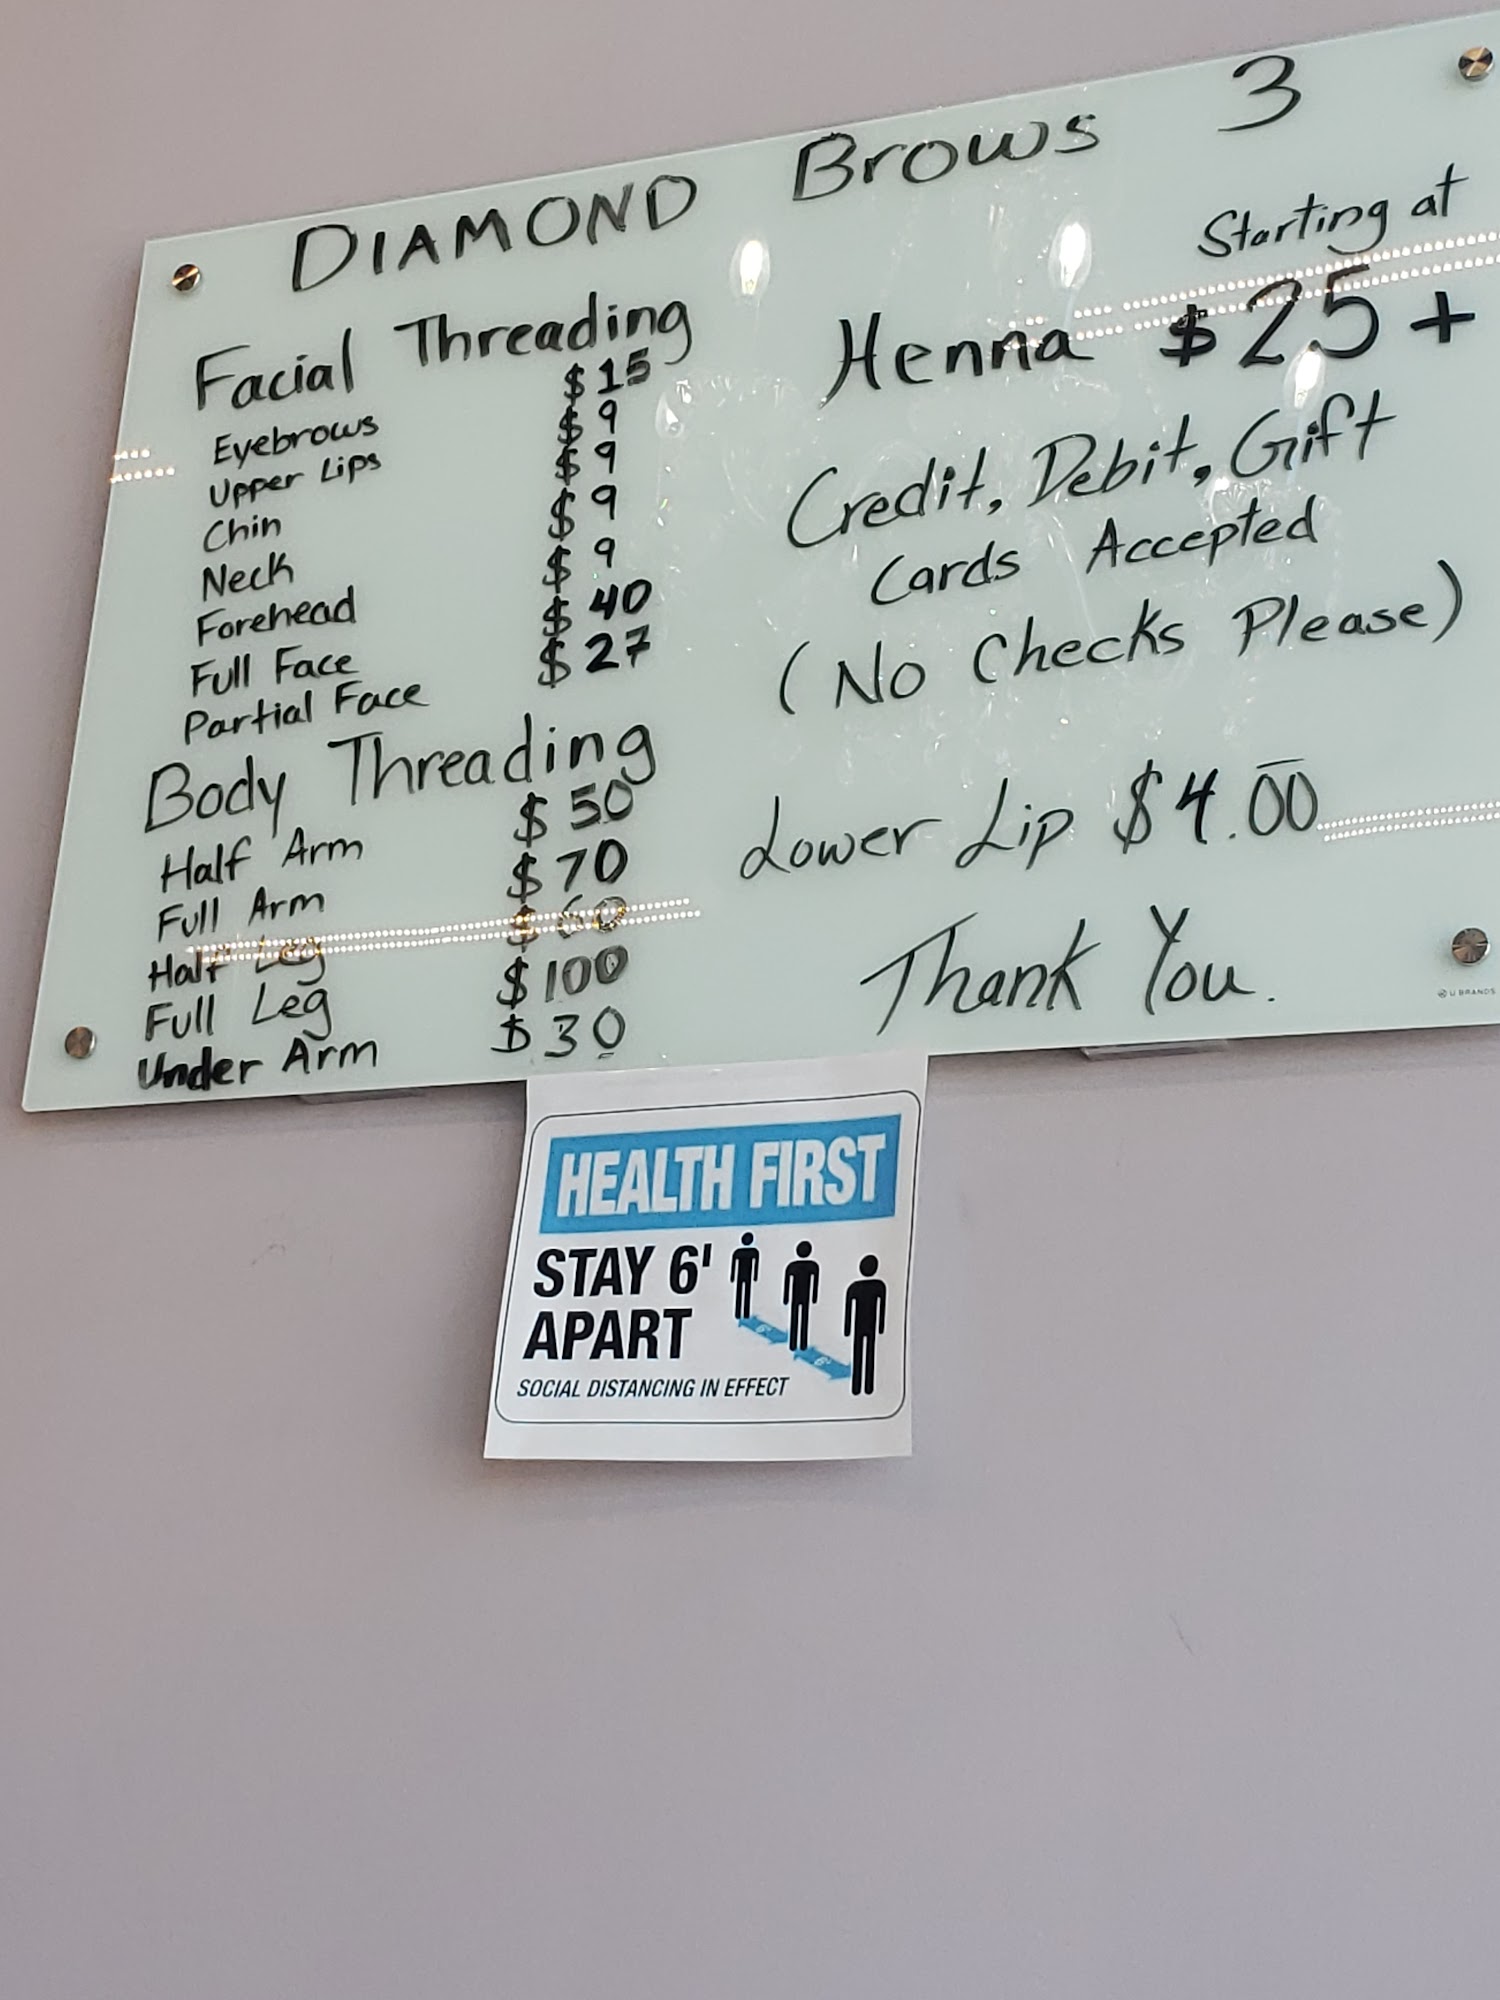 DIAMOND Brows 3
Facial Threading
Eyebrows $15
Upper Lips $9
Chin $9
Neck $9
Forehead $9
Full Face $40
Partial Face $27
Body Threading
Half Arm $50
Full Arm $70
Half Leg $60
Full Leg $100
Under Arm $30
Starting at
Henna $25+
Credit, Debit, Gift
Cards Accepted
(No Checks Please)
Lower Lip $4.00
Thank You.
U BRANDS
HEALTH FIRST
STAY 6'
APART
6'
6'
SOCIAL DISTANCING IN EFFECT